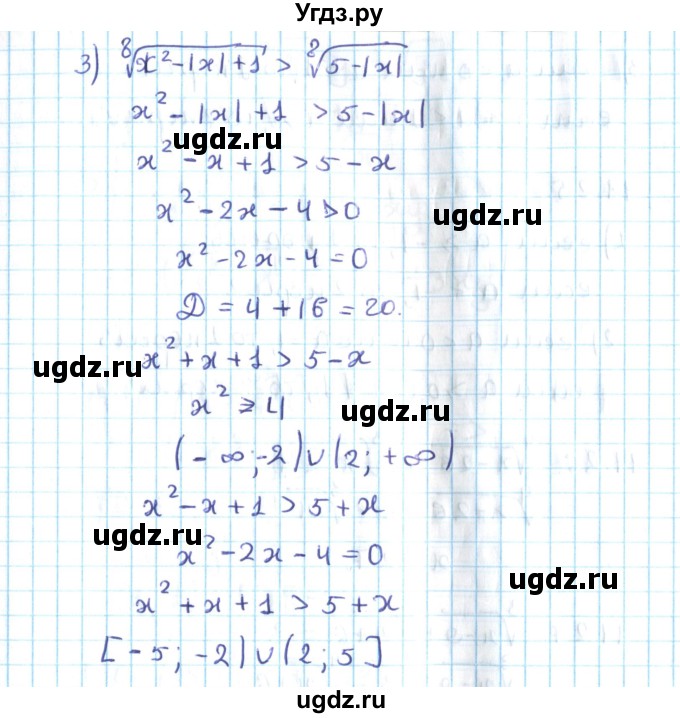 Угдз.ру
3) ⁸√(x² - |x| + 1) > ⁸√(5 - |x|)
x² - |x| + 1 > 5 - |x|
ugdz.ru
x² - x + 1 > 5 - x
x² - 2x - 4 > 0
ugdz.ru
x² - 2x - 4 = 0
D = 4 + 16 = 20.
x² + x + 1 > 5 - x
ugdz.ru
x² ≥ 4
ugdz.ru
(-∞; -2) ∪ (2; +∞)
x² - x + 1 > 5 + x
ugdz.ru
x² - 2x - 4 = 0
ugdz.ru
x² + x + 1 > 5 + x
[-5; -2) ∪ (2; 5]
ugdz.ru